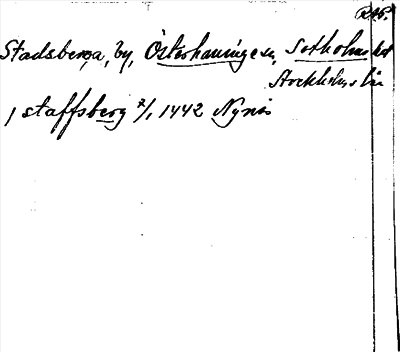 Stadsberga, by, Österhaninge sn, Sotholms hd
Stockholms län
i staffsberg 2/1 1442 Nynäs